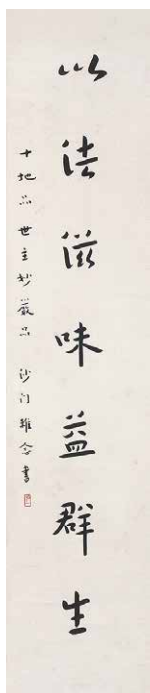 以法滋味益群生
十地品 世主妙嚴品 沙门雜念書